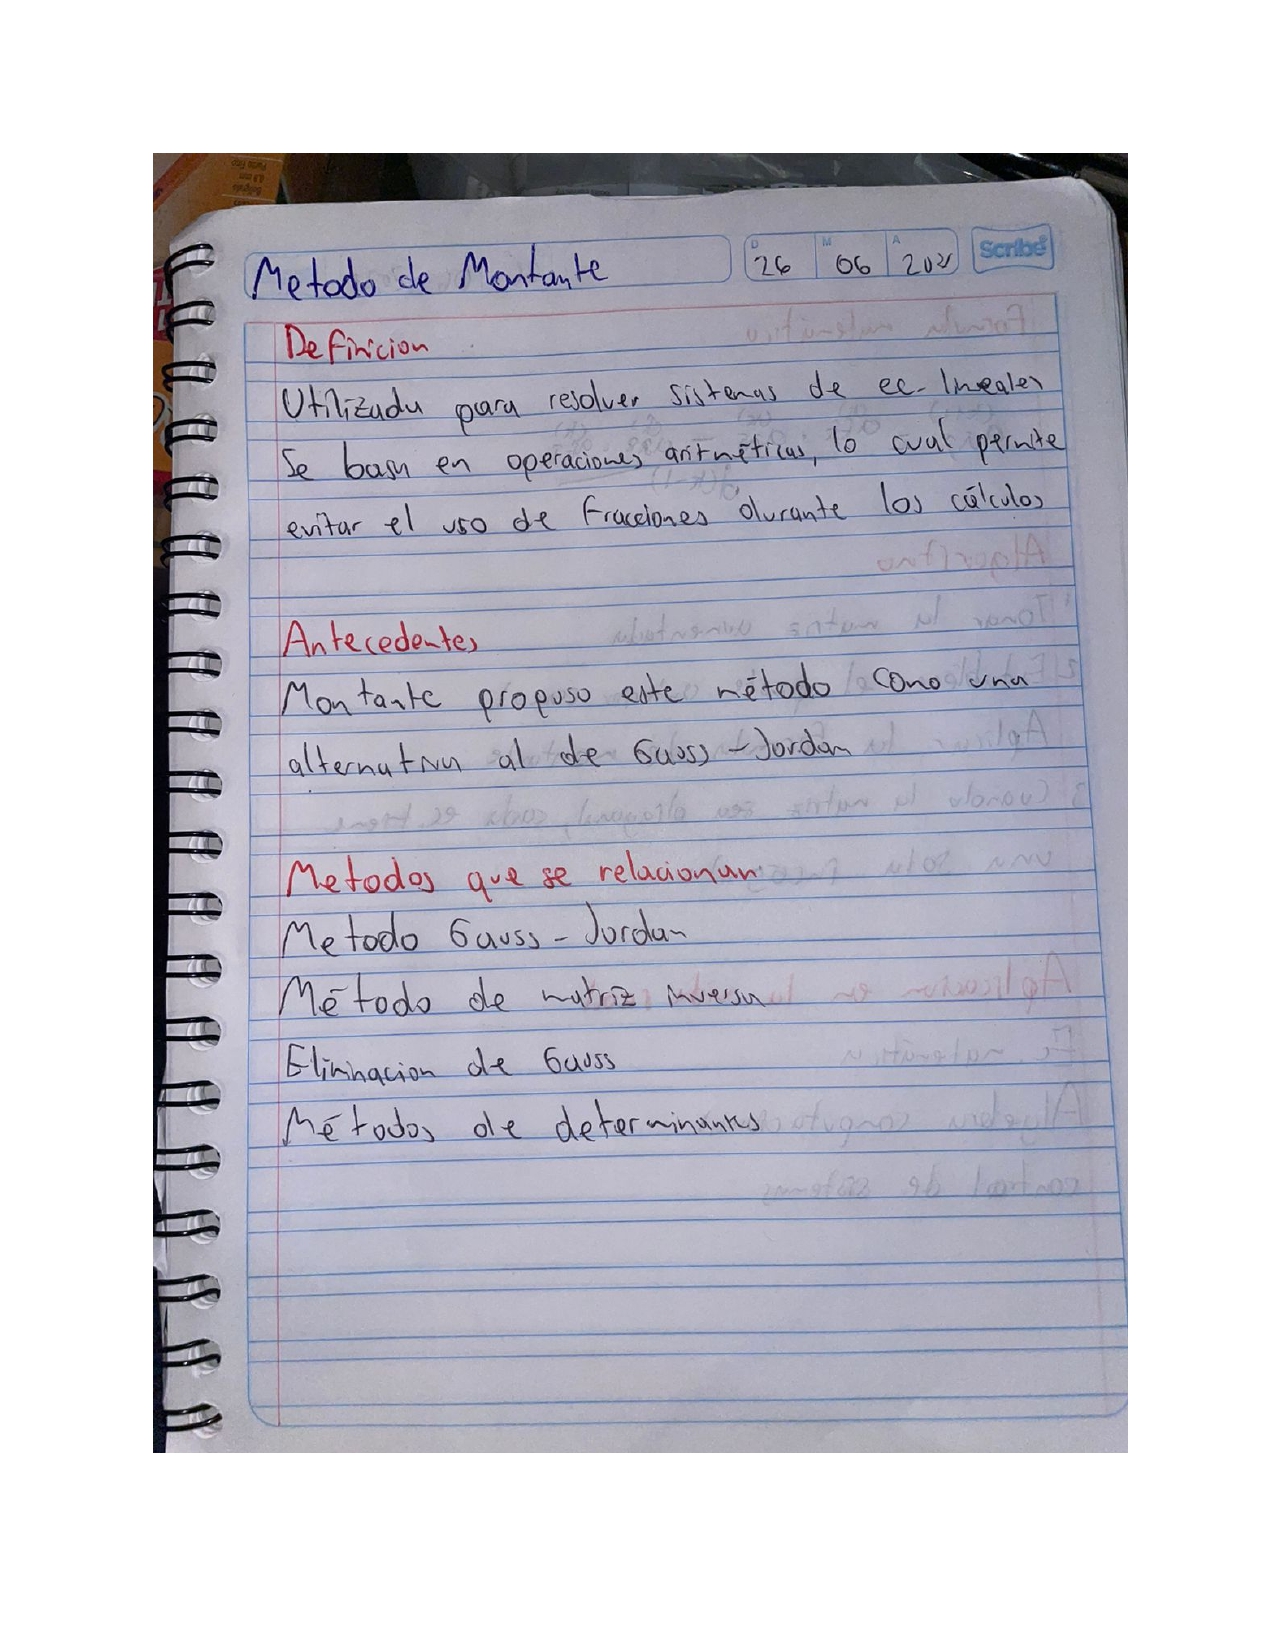 Metodo de Montante
D 26 M 06 A Scribe
Definicion
Utilizada para resolver sistemas de ec. lineales
Se basa en operaciones aritméticas, lo cual permite
evitar el uso de fracciones durante los cálculos
Antecedentes
Montante propuso este método como una
alternativa al de Gauss-Jordan
Metodos que se relacionan
Metodo Gauss-Jordan
Método de matriz inversa
Eliminacion de Gauss
Métodos de determinantes